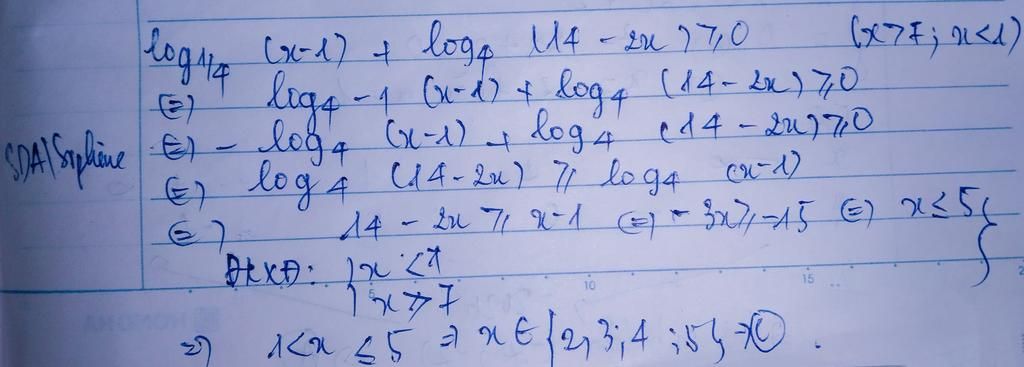 log1/4 (x-1) + log4 (14 - 2x) ⩾ 0 (x>7; x<1)
(=) log4-1 (x-1) + log4 (14 - 2x) ⩾ 0
(=) - log4 (x-1) + log4 (14 - 2x) ⩾ 0
SDA|
(=) log4 (14-2x) ⩾ log4 (x-1)
(=) 14 - 2x ⩾ x-1 (=) -3x ⩾ -15 (=) x ≤ 5 }
ĐKXĐ: { x <1
x > 7
10 15
=> 1<x ≤ 5 => x ∈ {2, 3; 4; 5} => C.